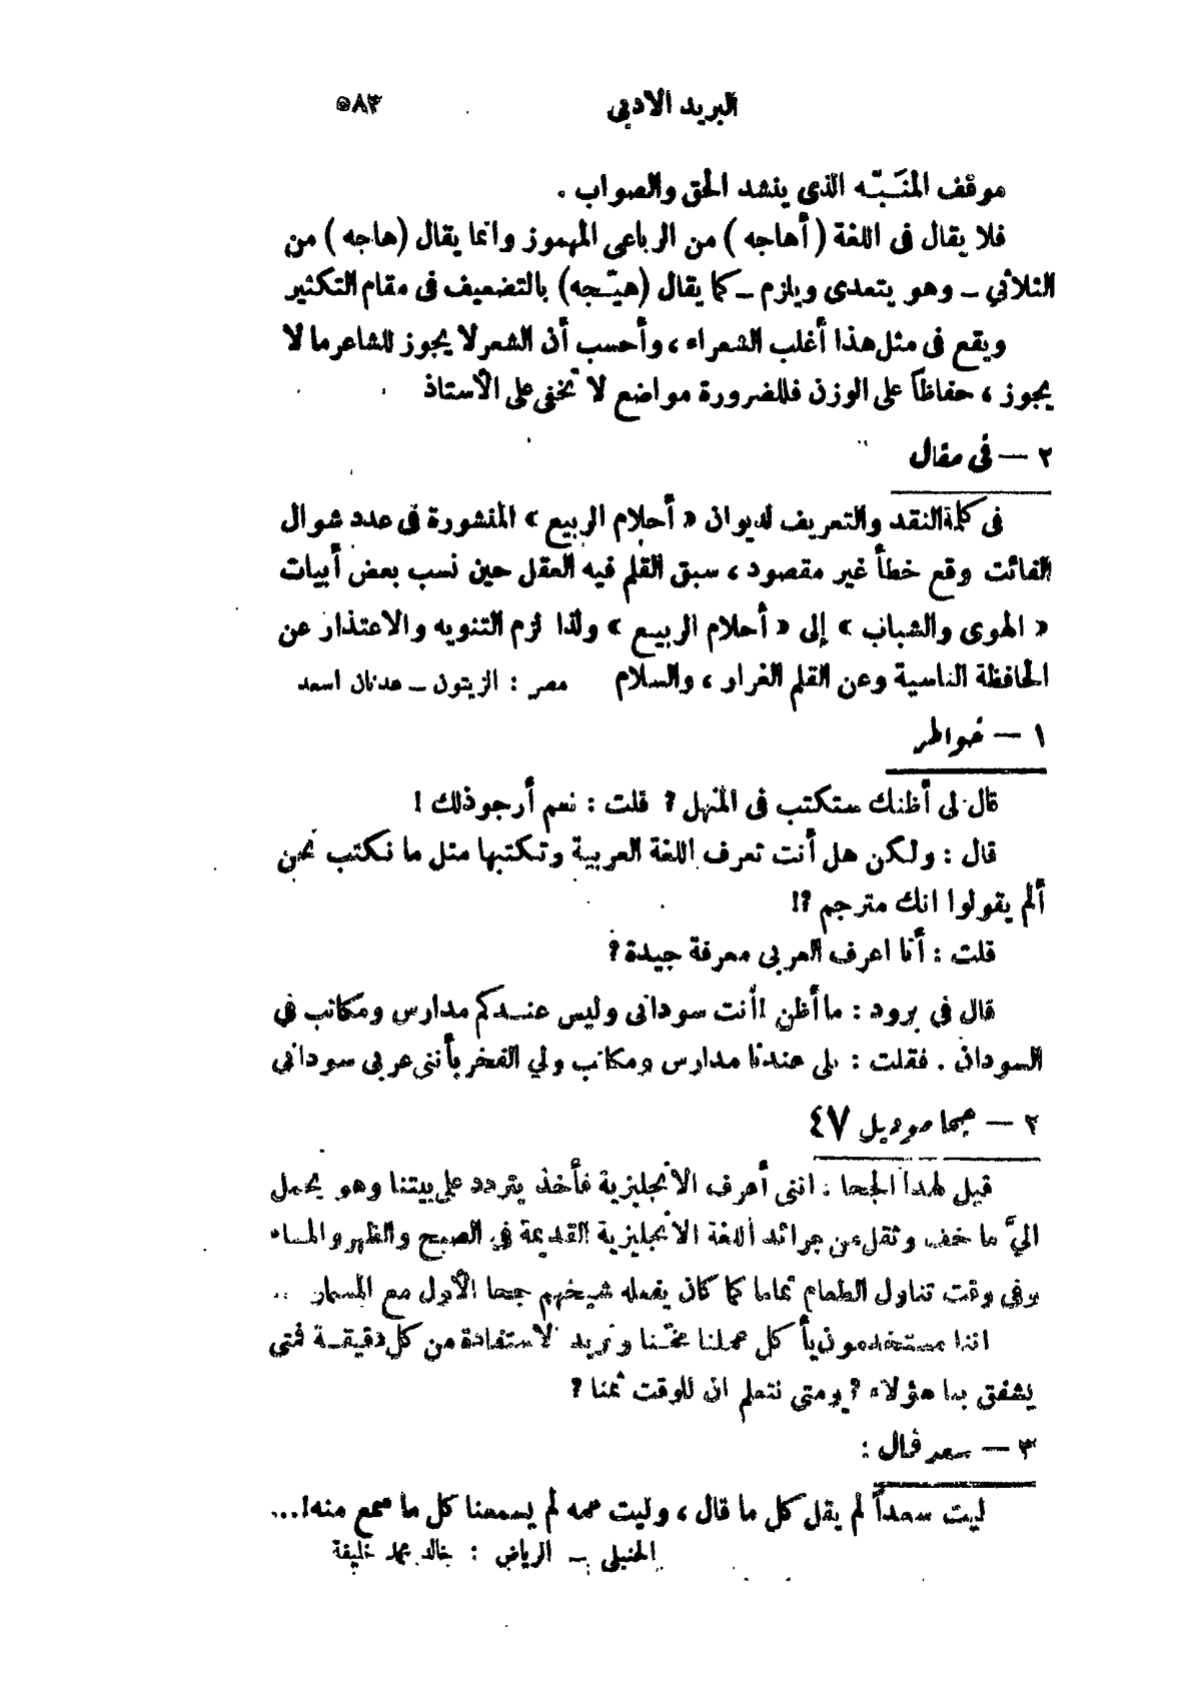 البريد الادبى ٥٨٣
موقف المنَبّه الذى ينشد الحق والصواب .
فلا يقال فى اللغة ( أهاجه ) من الرباعى المهموز وانما يقال (هاجه ) من
الثلاثي ـ وهو يتعدى ويلزم ـ كما يقال (هيّجه) بالتضعيف فى مقام التكثير
ويقع فى مثل هذا أغلب الشعراء ، وأحسب أن الشعر لا يجوز للشاعر ما لا
يجوز ، حفاظاً على الوزن فللضرورة مواضع لا تخفى على الأستاذ
٢ — فى مقال
فى كلمة النقد والتعريف لديوان « أحلام الربيع » المنشورة فى عدد شوال
الفائت وقع خطأ غير مقصود ، سبق القلم فيه العقل حين نسب بعض أبيات
« الهوى والشباب » إلى « أحلام الربيع » ولذا لزم التنويه والاعتذار عن
الحافظة الناسية وعن القلم الغرار ، والسلام مصر : الزيتون ـ عدنان اسعد
١ — خواطر
قال لى أظنك ستكتب فى المنهل ؟ قلت : نعم أرجو ذلك !
قال : ولكن هل أنت تعرف اللغة العربية وتكتبها مثل ما نكتب نحن
ألم يقولوا انك مترجم ؟!
قلت : أنا اعرف العربى معرفة جيدة ؟
قال في برود : ما أظن ! أنت سودانى وليس عندكم مدارس ومكاتب في
السودان . فقلت : بلى عندنا مدارس ومكاتب ولي الفخر بأننى عربى سودانى
٢ — جحا موديل ٤٧
قيل لهذا الجحا : اننى أعرف الانجليزية فأخذ يتردد على بيتنا وهو يحمل
اليَّ ما خف وثقل من جرائد اللغة الانجليزية القديمة في الصبح والظهر والمساء
وفى وقت تناول الطعام تماما كما كان يفعله شيخهم جحا الأول مع المسمار ..
اننا مستخدمون يأكل عملنا مخنا ونريد الاستفادة من كل دقيقة فمتى
يشفق بنا هؤلاء ؟ ومتى نتعلم ان للوقت ثمنا ؟
٣ — سعد قال :
ليت سعداً لم يقل كل ما قال ، وليت عمه لم يسمعنا كل ما سمع منه !...
الحنبلى ـ الرياض : خالد محمد خليفة